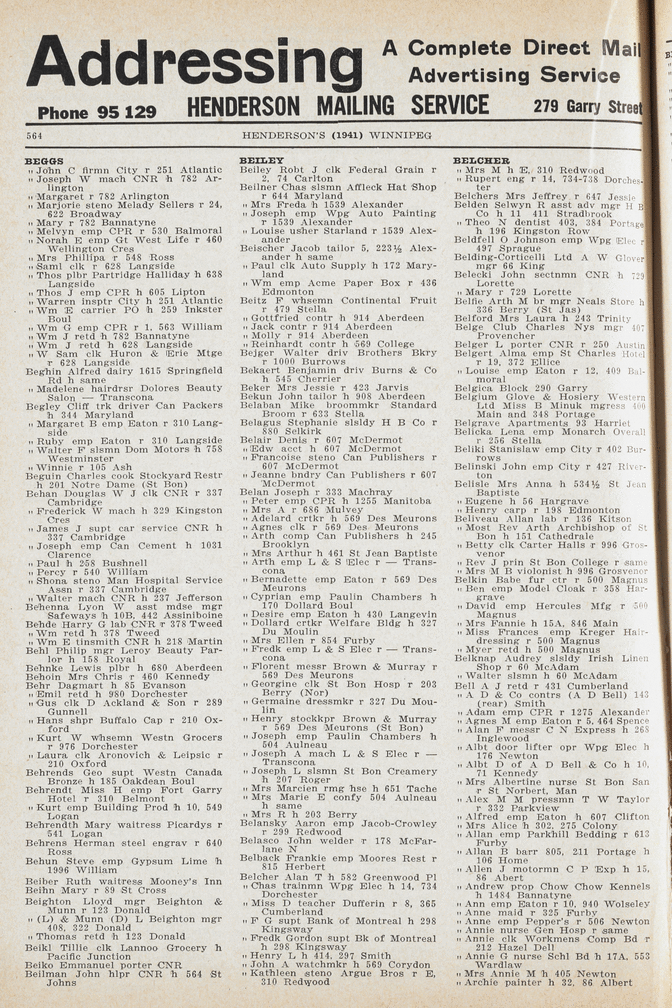 Addressing
A Complete Direct Mail
Advertising Service
Phone 95 129 HENDERSON MAILING SERVICE 279 Garry Street
564 HENDERSON'S (1941) WINNIPEG
BEGGS
" John C firmn City r 251 Atlantic
" Joseph W mach CNR h 782 Ar-
lington
" Margaret r 782 Arlington
" Marjorie steno Melady Sellers r 24,
622 Broadway
" Mary r 782 Bannatyne
" Melvyn emp CPR r 530 Balmoral
" Norah E emp Gt West Life r 460
Wellington Cres
" Mrs Phillipa r 548 Ross
" Saml clk r 628 Langside
" Thos plbr Partridge Halliday h 638
Langside
" Thos J emp CPR h 605 Lipton
" Warren insptr City h 251 Atlantic
" Wm E carrier PO h 259 Inkster
Boul
" Wm G emp CPR r 1, 563 William
" Wm J retd h 782 Bannatyne
" Wm J retd h 628 Langside
" W Sam clk Huron & Erie Mtge
r 628 Langside
Beghin Alfred dairy 1615 Springfield
Rd h same
" Madelene hairdrsr Dolores Beauty
Salon — Transcona
Begley Cliff trk driver Can Packers
h 344 Maryland
" Margaret B emp Eaton r 310 Lang-
side
" Ruby emp Eaton r 310 Langside
" Walter F slsmn Dom Motors h 758
Westminster
" Winnie r 105 Ash
Beguin Charles cook Stockyard Restr
h 201 Notre Dame (St Bon)
Behan Douglas W J clk CNR r 337
Cambridge
" Frederick W mach h 329 Kingston
Cres
" James J supt car service CNR h
337 Cambridge
" Joseph emp Can Cement h 1031
Clarence
" Paul h 258 Bushnell
" Percy r 540 William
" Shona steno Man Hospital Service
Assn r 337 Cambridge
" Walter mach CNR h 237 Jefferson
Behenna Lyon W asst mdse mgr
Safeways h 10B, 442 Assiniboine
Behde Harry G lab CNR r 378 Tweed
" Wm retd h 378 Tweed
" Wm E tinsmith CNR h 218 Martin
Behl Philip mgr Leroy Beauty Par-
lor h 158 Royal
Behnke Lewis plbr h 680 Aberdeen
Behoin Mrs Chris r 460 Kennedy
Behr Dagmart h 85 Evanson
" Emil retd h 980 Dorchester
" Gus clk D Ackland & Son r 289
Gunnell
" Hans shpr Buffalo Cap r 210 Ox-
ford
" Kurt W whsemn Westn Grocers
r 976 Dorchester
" Laura clk Aronovich & Leipsic r
210 Oxford
Behrends Geo supt Westn Canada
Bronze h 185 Oakdean Boul
Behrendt Miss H emp Fort Garry
Hotel r 310 Belmont
" Kurt emp Building Prod h 10, 549
Logan
Behrendth Mary waitress Picardys r
541 Logan
Behrens Herman steel engrav r 640
Ross
Behun Steve emp Gypsum Lime h
1996 William
Beiber Ruth waitress Mooney's Inn
Beihn Mary r 89 St Cross
Beighton Lloyd mgr Beighton &
Munn r 123 Donald
" (L) & Munn (D) L Beighton mgr
408, 322 Donald
" Thomas retd h 123 Donald
Beikl Tillie clk Lannoo Grocery h
Pacific Junction
Beiko Emmanuel porter CNR
Beilman John hlpr CNR h 564 St
Johns
BEILEY
Beiley Robt J clk Federal Grain r
2, 74 Carlton
Beilner Chas slsmn Affleck Hat Shop
r 644 Maryland
" Mrs Freda h 1539 Alexander
" Joseph emp Wpg Auto Painting
r 1539 Alexander
" Louise usher Starland r 1539 Alex-
ander
Beischer Jacob tailor 5, 223½ Alex-
ander h same
" Paul clk Auto Supply h 172 Mary-
land
" Wm emp Acme Paper Box r 436
Edmonton
Beitz F whsemn Continental Fruit
r 479 Stella
" Gottfried contr h 914 Aberdeen
" Jack contr r 914 Aberdeen
" Molly r 914 Aberdeen
" Reinhardt contr h 569 College
Bejger Walter driv Brothers Bkry
r 1000 Burrows
Bekaert Benjamin driv Burns & Co
h 545 Cherrier
Beker Mrs Jessie r 423 Jarvis
Bekun John tailor h 908 Aberdeen
Belaban Mike broommkr Standard
Broom r 633 Stella
Belagus Stephanie slsldy H B Co r
880 Selkirk
Belair Denis r 607 McDermot
" Edw acct h 607 McDermot
" Francoise steno Can Publishers r
607 McDermot
" Jeanne bndry Can Publishers r 607
McDermot
Belan Joseph r 333 Machray
" Peter emp CPR h 1255 Manitoba
" Mrs A r 686 Mulvey
" Adelard crtkr h 569 Des Meurons
" Agnes clk r 569 Des Meurons
" Arth comp Can Publishers h 245
Brooklyn
" Mrs Arthur h 461 St Jean Baptiste
" Arth emp L & S Elec r — Trans-
cona
" Bernadette emp Eaton r 569 Des
Meurons
" Cyprien emp Paulin Chambers h
170 Dollard Boul
" Desire emp Eaton h 430 Langevin
" Dollard crtkr Welfare Bldg h 327
Du Moulin
" Mrs Ellen r 854 Furby
" Fredk emp L & S Elec r — Trans-
cona
" Florent messr Brown & Murray r
569 Des Meurons
" Georgine clk St Bon Hosp r 203
Berry (Nor)
" Germaine dressmkr r 327 Du Mou-
lin
" Henry stockkpr Brown & Murray
r 569 Des Meurons (St Bon)
" Joseph emp Paulin Chambers h
504 Aulneau
" Joseph A mach L & S Elec r —
Transcona
" Joseph L slsmn St Bon Creamery
h 207 Roger
" Mrs Marcien rmg hse h 651 Tache
" Mrs Marie E confy 504 Aulneau
h same
" Mrs R h 203 Berry
Belansky Aaron emp Jacob-Crowley
r 299 Redwood
Belasco John welder r 178 McFar-
lane N
Belback Frankie emp Moores Rest r
815 Herbert
Belcher Alan T h 582 Greenwood Pl
" Chas trainmn Wpg Elec h 14, 734
Dorchester
" Miss D teacher Dufferin r 8, 365
Cumberland
" F G supt Bank of Montreal h 298
Kingsway
" Fredk Gordon supt Bk of Montreal
h 298 Kingsway
" Henry L h 414, 297 Smith
" John A watchmkr h 569 Corydon
" Kathleen steno Argue Bros r E,
310 Redwood
BELCHER
" Mrs M h E, 310 Redwood
" Rupert eng r 14, 734-738 Dorches-
ter
Belchers Mrs Jeffrey r 647 Jessie
Belden Selwyn R asst adv mgr H B
Co h 11 411 Stradbrook
" Theo N dentist 403, 384 Portage
h 196 Kingston Row
Beldfell O Johnson emp Wpg Elec r
497 Sprague
Belding-Corticelli Ltd A W Glover
mgr 66 King
Belecki John sectnmn CNR h 729
Lorette
" Mary r 729 Lorette
Belfie Arth M br mgr Neals Store h
336 Berry (St Jas)
Belford Mrs Laura h 243 Trinity
Belge Club Charles Nys mgr 407
Provencher
Belger L porter CNR r 250 Austin
Belgert Alma emp St Charles Hotel
r 19, 372 Ellice
" Louise emp Eaton r 12, 409 Bal-
moral
Belgica Block 290 Garry
Belgium Glove & Hosiery Western
Ltd Miss B Minuk mgress 400
Main and 348 Portage
Belgrave Apartments 93 Harriet
Belicka Lena emp Monarch Overall
r 256 Stella
Beliki Stanislaw emp City r 402 Bur-
rows
Belinski John emp City r 427 River-
ton
Belisle Mrs Anna h 534½ St Jean
Baptiste
" Eugene h 56 Hargrave
" Henry carp r 198 Edmonton
Beliveau Allan lab r 136 Kitson
" Most Rev Arth Archbishop of St
Bon h 151 Cathedrale
" Betty clk Carter Halls r 996 Gros-
venor
" Rev J prin St Bon College r same
" Mrs M B violonist h 996 Grosvenor
Belkin Babe fur ctr r 500 Magnus
" Ben emp Model Cloak r 358 Har-
grave
" David emp Hercules Mfg r 500
Magnus
" Mrs Fannie h 15A, 846 Main
" Miss Frances emp Kreger Hair-
dressing r 500 Magnus
" Myer retd h 500 Magnus
Belknap Audrey slsldy Irish Linen
Shop r 60 McAdam
" Walter slsmn h 60 McAdam
Bell A J retd r 431 Cumberland
" A D & Co contrs (A D Bell) 143
(rear) Smith
" Adam emp CPR r 1275 Alexander
" Agnes M emp Eaton r 5, 464 Spence
" Alan F messr C N Express h 268
Inglewood
" Albt door lifter opr Wpg Elec h
176 Newton
" Albt D of A D Bell & Co h 10,
71 Kennedy
" Mrs Albertine nurse St Bon San
r St Norbert, Man
" Alex M M pressmn T W Taylor
r 332 Parkview
" Alfred emp Eaton h 607 Clifton
" Mrs Alice h 302, 275 Colony
" Allan emp Parkhill Bedding r 613
Furby
" Allan B barr 805, 211 Portage h
106 Home
" Allen J motormn C P Exp h 15,
86 Abert
" Andrew prop Chow Chow Kennels
h 1484 Bannatyne
" Ann emp Eaton r 10, 940 Wolseley
" Anne maid r 325 Furby
" Anne emp Pepper's r 506 Newton
" Annie nurse Gen Hosp r same
" Annie clk Workmens Comp Bd r
212 Hazel Dell
" Annie G nurse Schl Bd h 17A, 553
Wardlaw
" Mrs Annie M h 405 Newton
" Archie painter h 32, 86 Albert